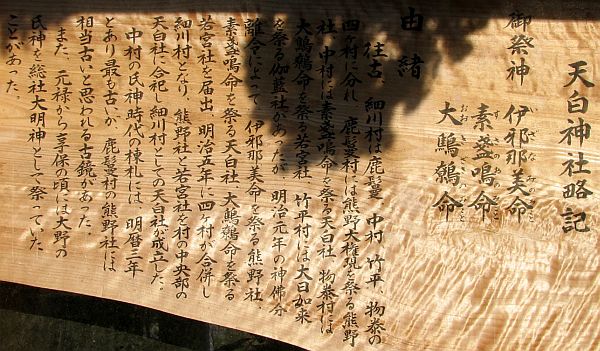 天白神社略記
御祭神
伊邪那美命
いざなみのみこと
素盞嗚命
すさのおのみこと
大鷦鷯命
おおさざきのみこと
由緒
往古、細川村は鹿鬘、中村、竹平、物奏の
四ヶ村に分れ、鹿鬘村には熊野大権現を祭る熊野
社、中村には素盞嗚命を祭る天白社、物奏村には
大鷦鷯命を祭る若宮社、竹平村には大日如来
を祭る伽藍社があったが、明治元年の神佛分
離令によって、伊邪那美命を祭る熊野社、
素盞嗚命を祭る天白社、大鷦鷯命を祭る
若宮社を届出、明治五年に四ヶ村が合併し
細川村となり、熊野社と若宮社を村の中央部の
天白社に合祀し細川村としての天白社が成立した。
中村の氏神時代の棟札には、明暦三年
とあり最も古いが、鹿鬘村の熊野社には
相当古いと思われる古鏡があった。
また、元禄から享保の頃には大野の
氏神を総社大明神として祭っていた
ことがあった。